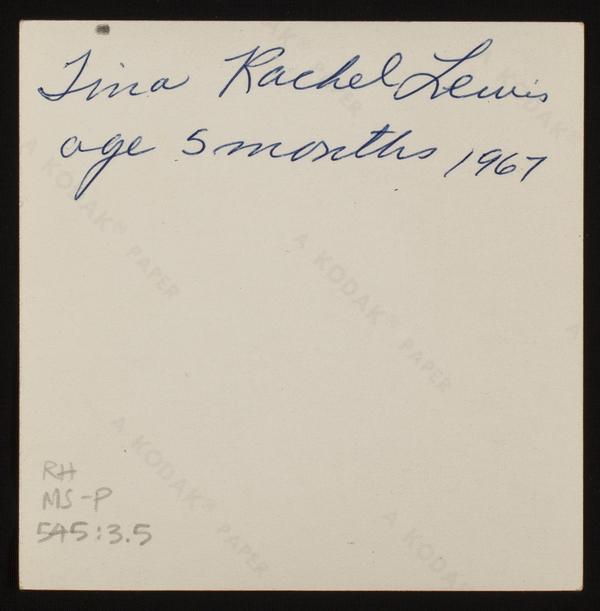 Tina Rachel Lewis
age 5 months 1967
A KODAK® PAPER
A KODAK® PAPER
A KODAK® PAPER
A KODAK
RH
MS-P
545:3.5